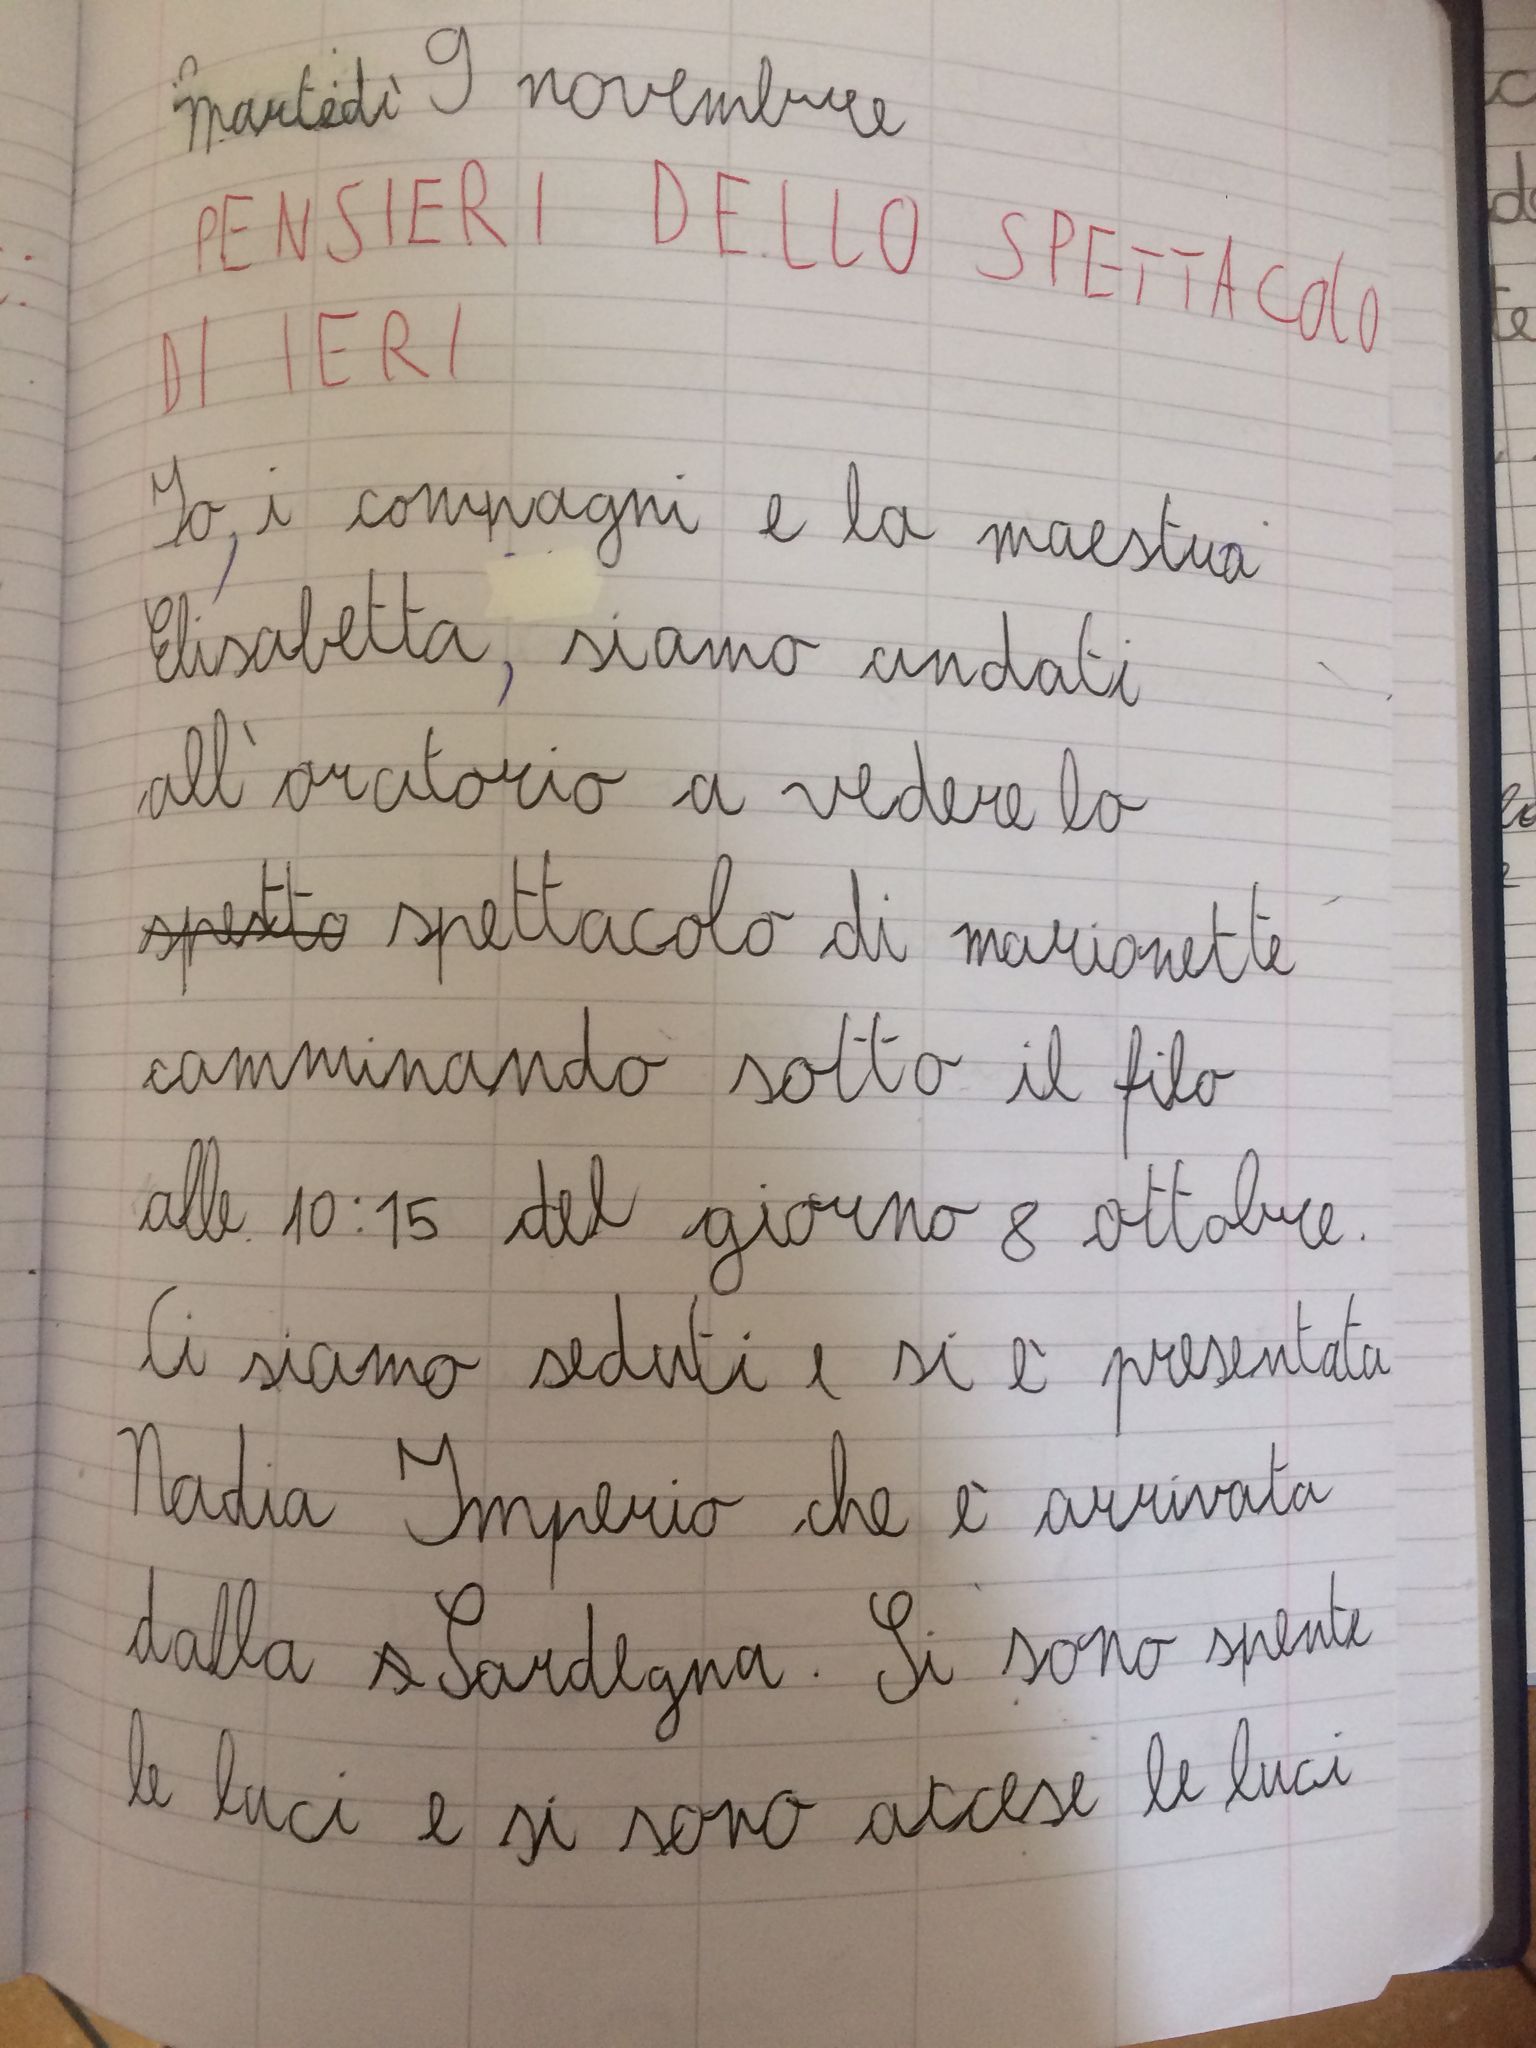 martedì 9 novembre
PENSIERI DELLO SPETTACOLO
DI IERI
Io, i compagni e la maestra
Elisabetta, siamo andati
all'oratorio a vedere lo
spetto spettacolo di marionette
camminando sotto il filo
alle 10:15 del giorno 8 ottobre.
Ci siamo seduti e si è presentata
Nadia Imperio che è arrivata
dalla s Sardegna. Si sono spente
le luci e si sono accese le luci